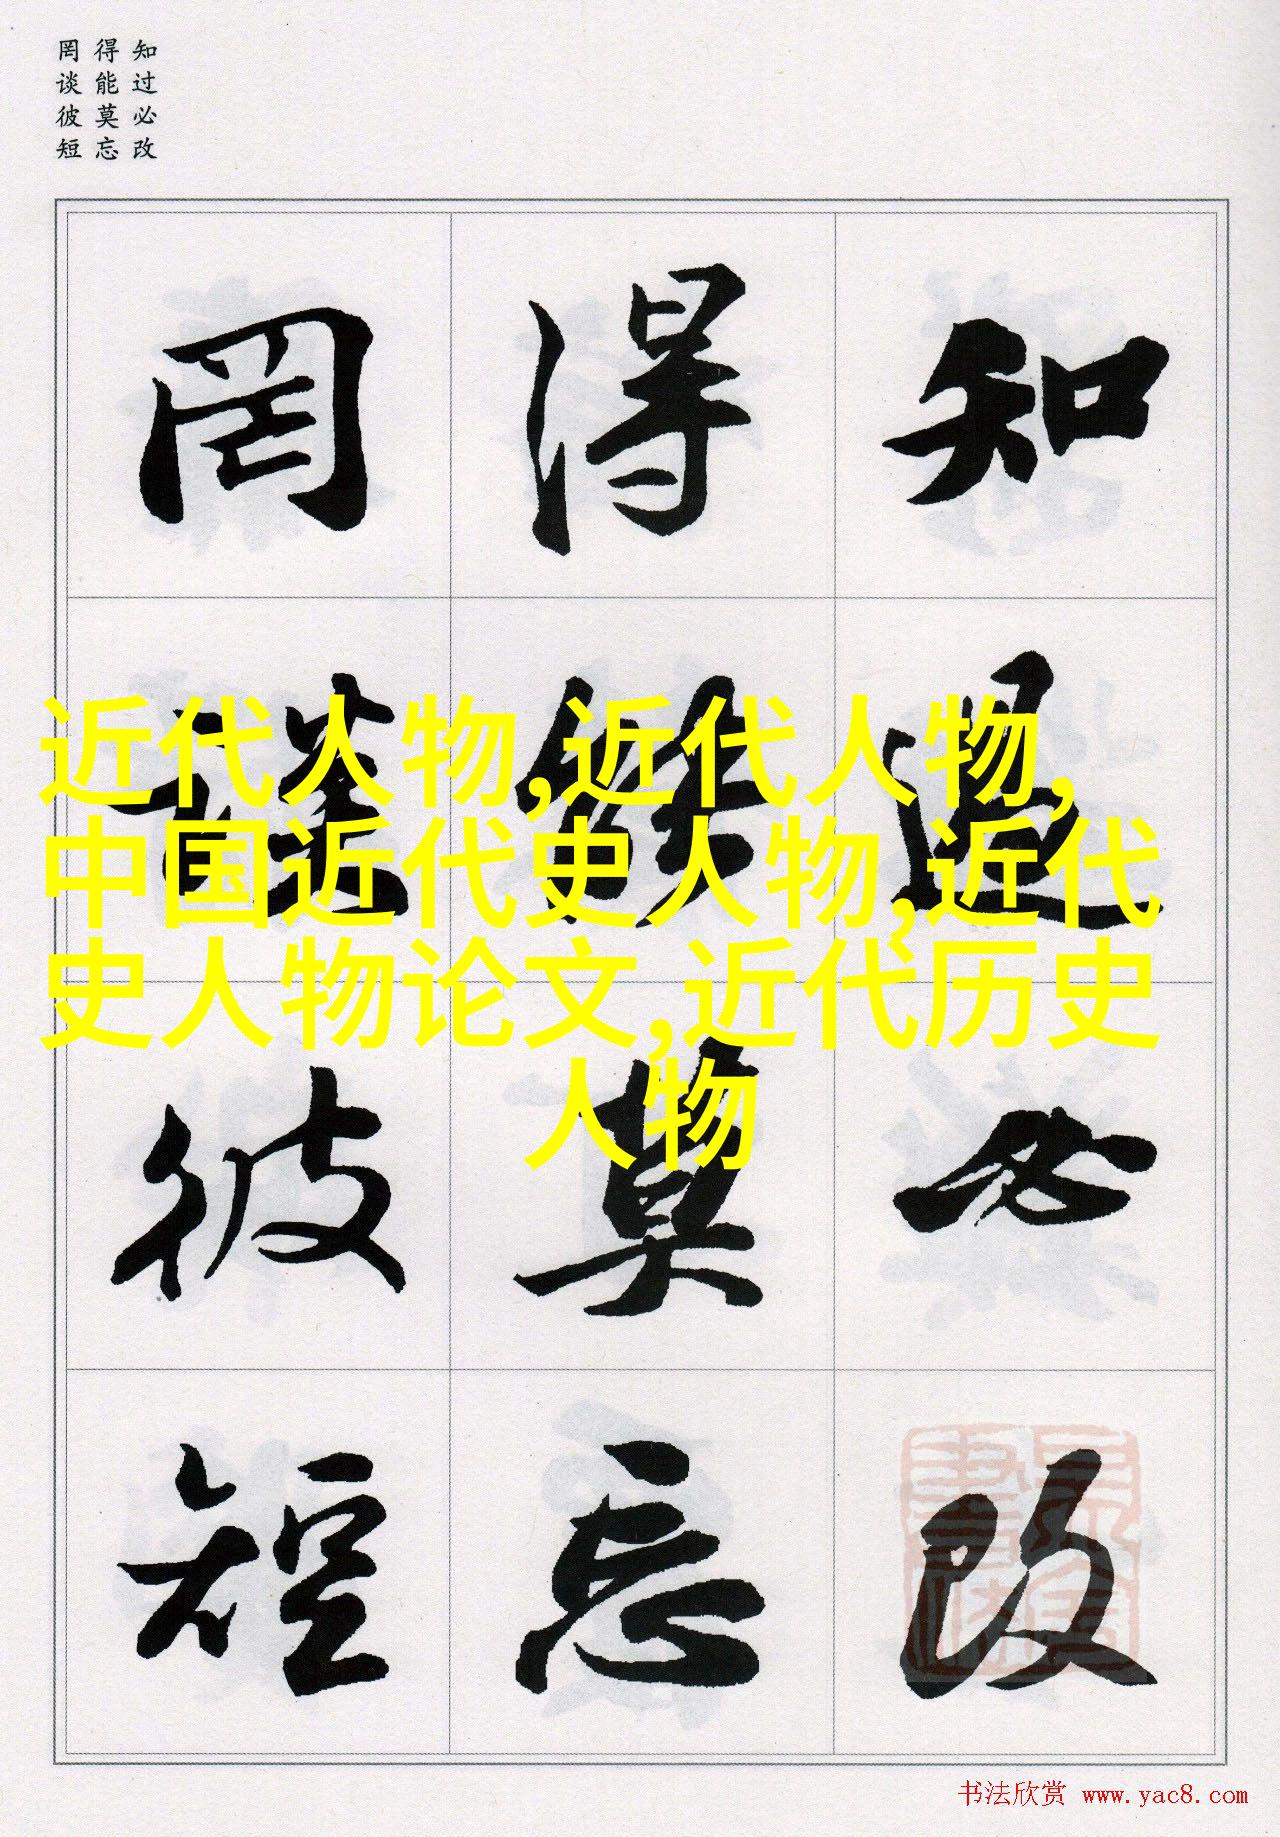 知过必改
得能莫忘
罔谈彼短
知過必改
得能莫忘
罔談彼短
近代人物,近代人物,
中国近代史人物,近代
史人物论文,近代历史
人物
书法欣赏 www.yac8.com